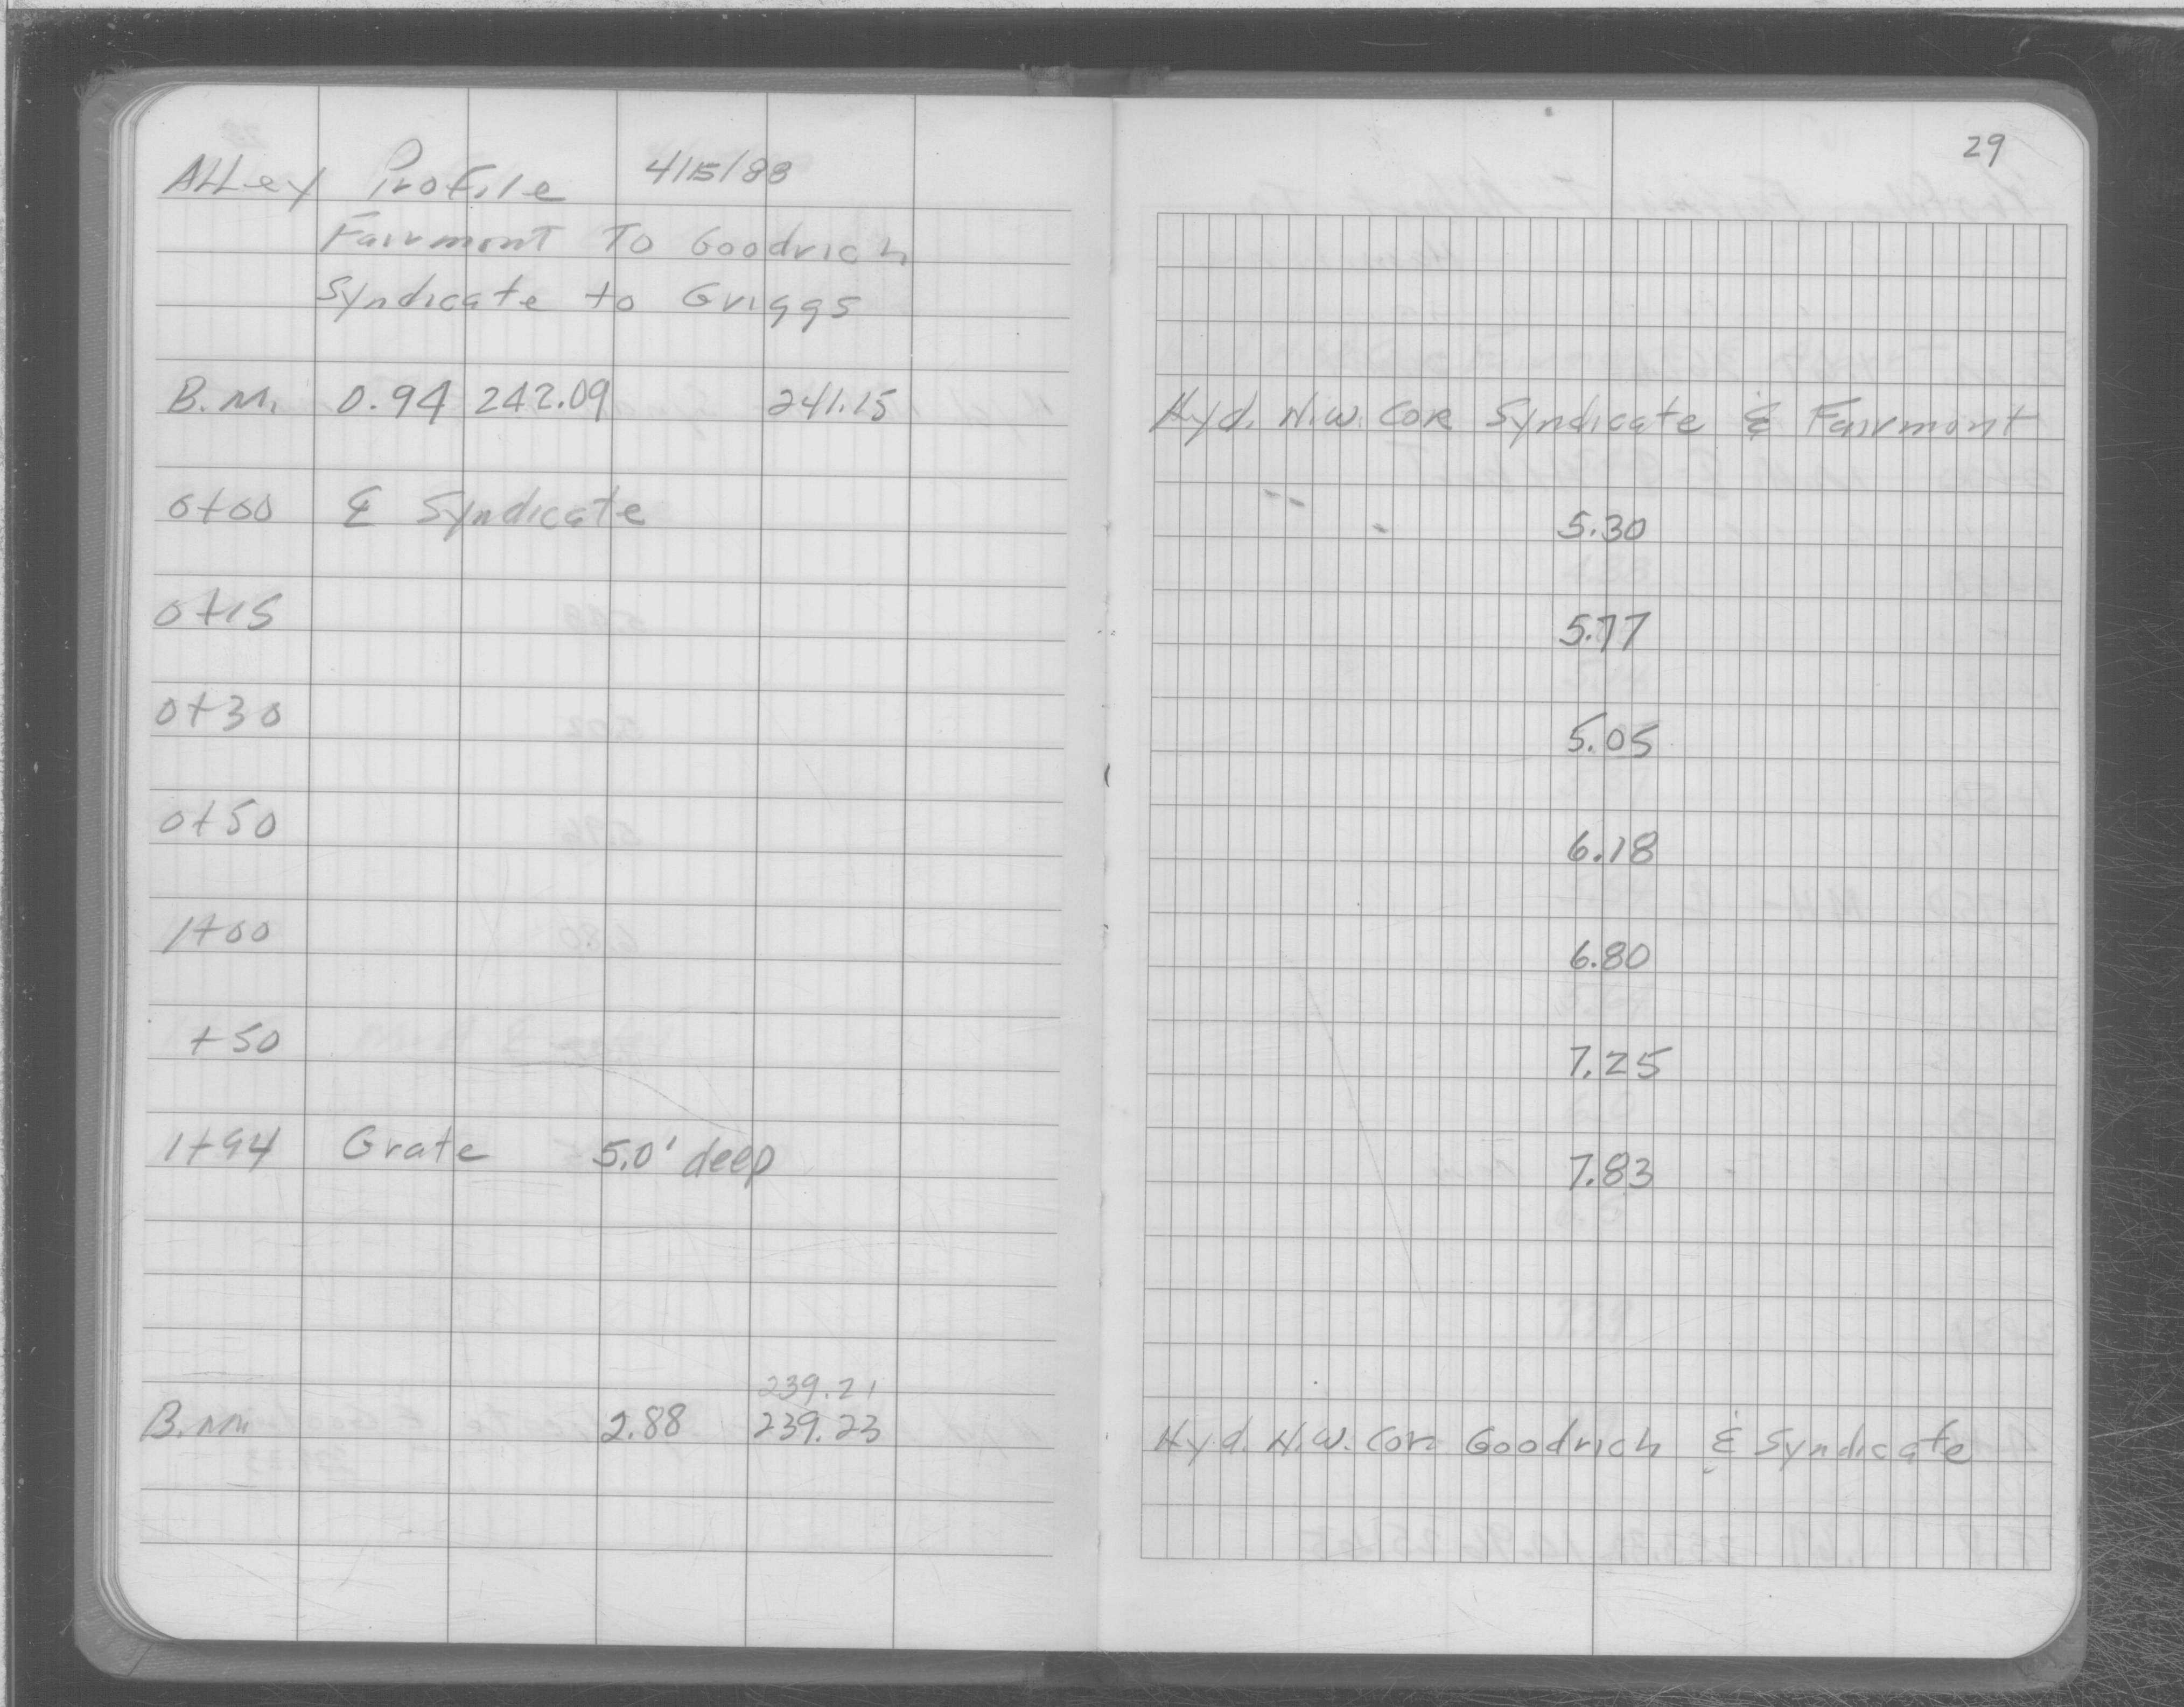 29
ALLey Profile 4/15/88
Fairmont To Goodrich
Syndicate to Griggs
B.M. 0.94 242.09 241.15 Hyd. N.W. COR Syndicate & Fairmont
0+00 ℄ Syndicate 5.30
0+15 5.77
0+30 5.05
0+50 6.18
1+00 6.80
+50 7.25
1+94 Grate 5.0' deep 7.83
239.21
B.M. 2.88 239.23 Hyd. N.W. Cor. Goodrich & Syndicate